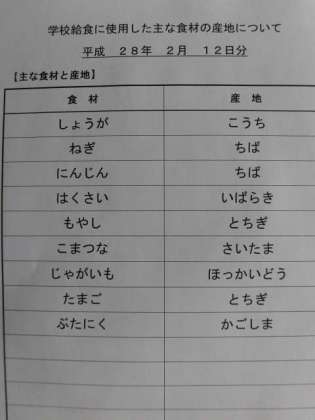 学校給食に使用した主な食材の産地について
平成　２８年　２月　１２日分
【主な食材と産地】
食　材　産　地
しょうが　こうち
ねぎ　ちば
にんじん　ちば
はくさい　いばらき
もやし　とちぎ
こまつな　さいたま
じゃがいも　ほっかいどう
たまご　とちぎ
ぶたにく　かごしま